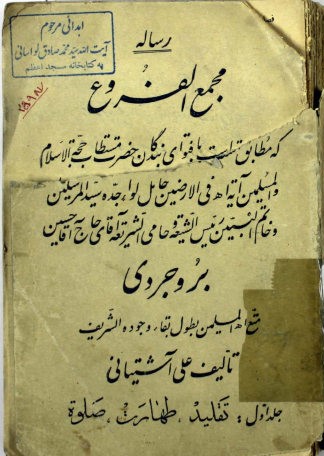 اهدائی مرحوم
آیت الله سید محمد صادق لواسانی
به کتابخانه مسجد اعظم
رساله
مجمع الفروع
که مطابق است با فتوای بندگان حضرت مستطاب حجة الاسلام
والمسلمین آیة الله فی الارضین حامل لواء جده سید المرسلین
و خاتم النبیین رئیس الشیعة و حامی الشریعة آقای حاج آقا حسین
بروجردی
متع الله المسلمین بطول بقاء وجوده الشریف
تألیف علی آشتیانی
جلد اول: تقلید، طهارت، صلوة